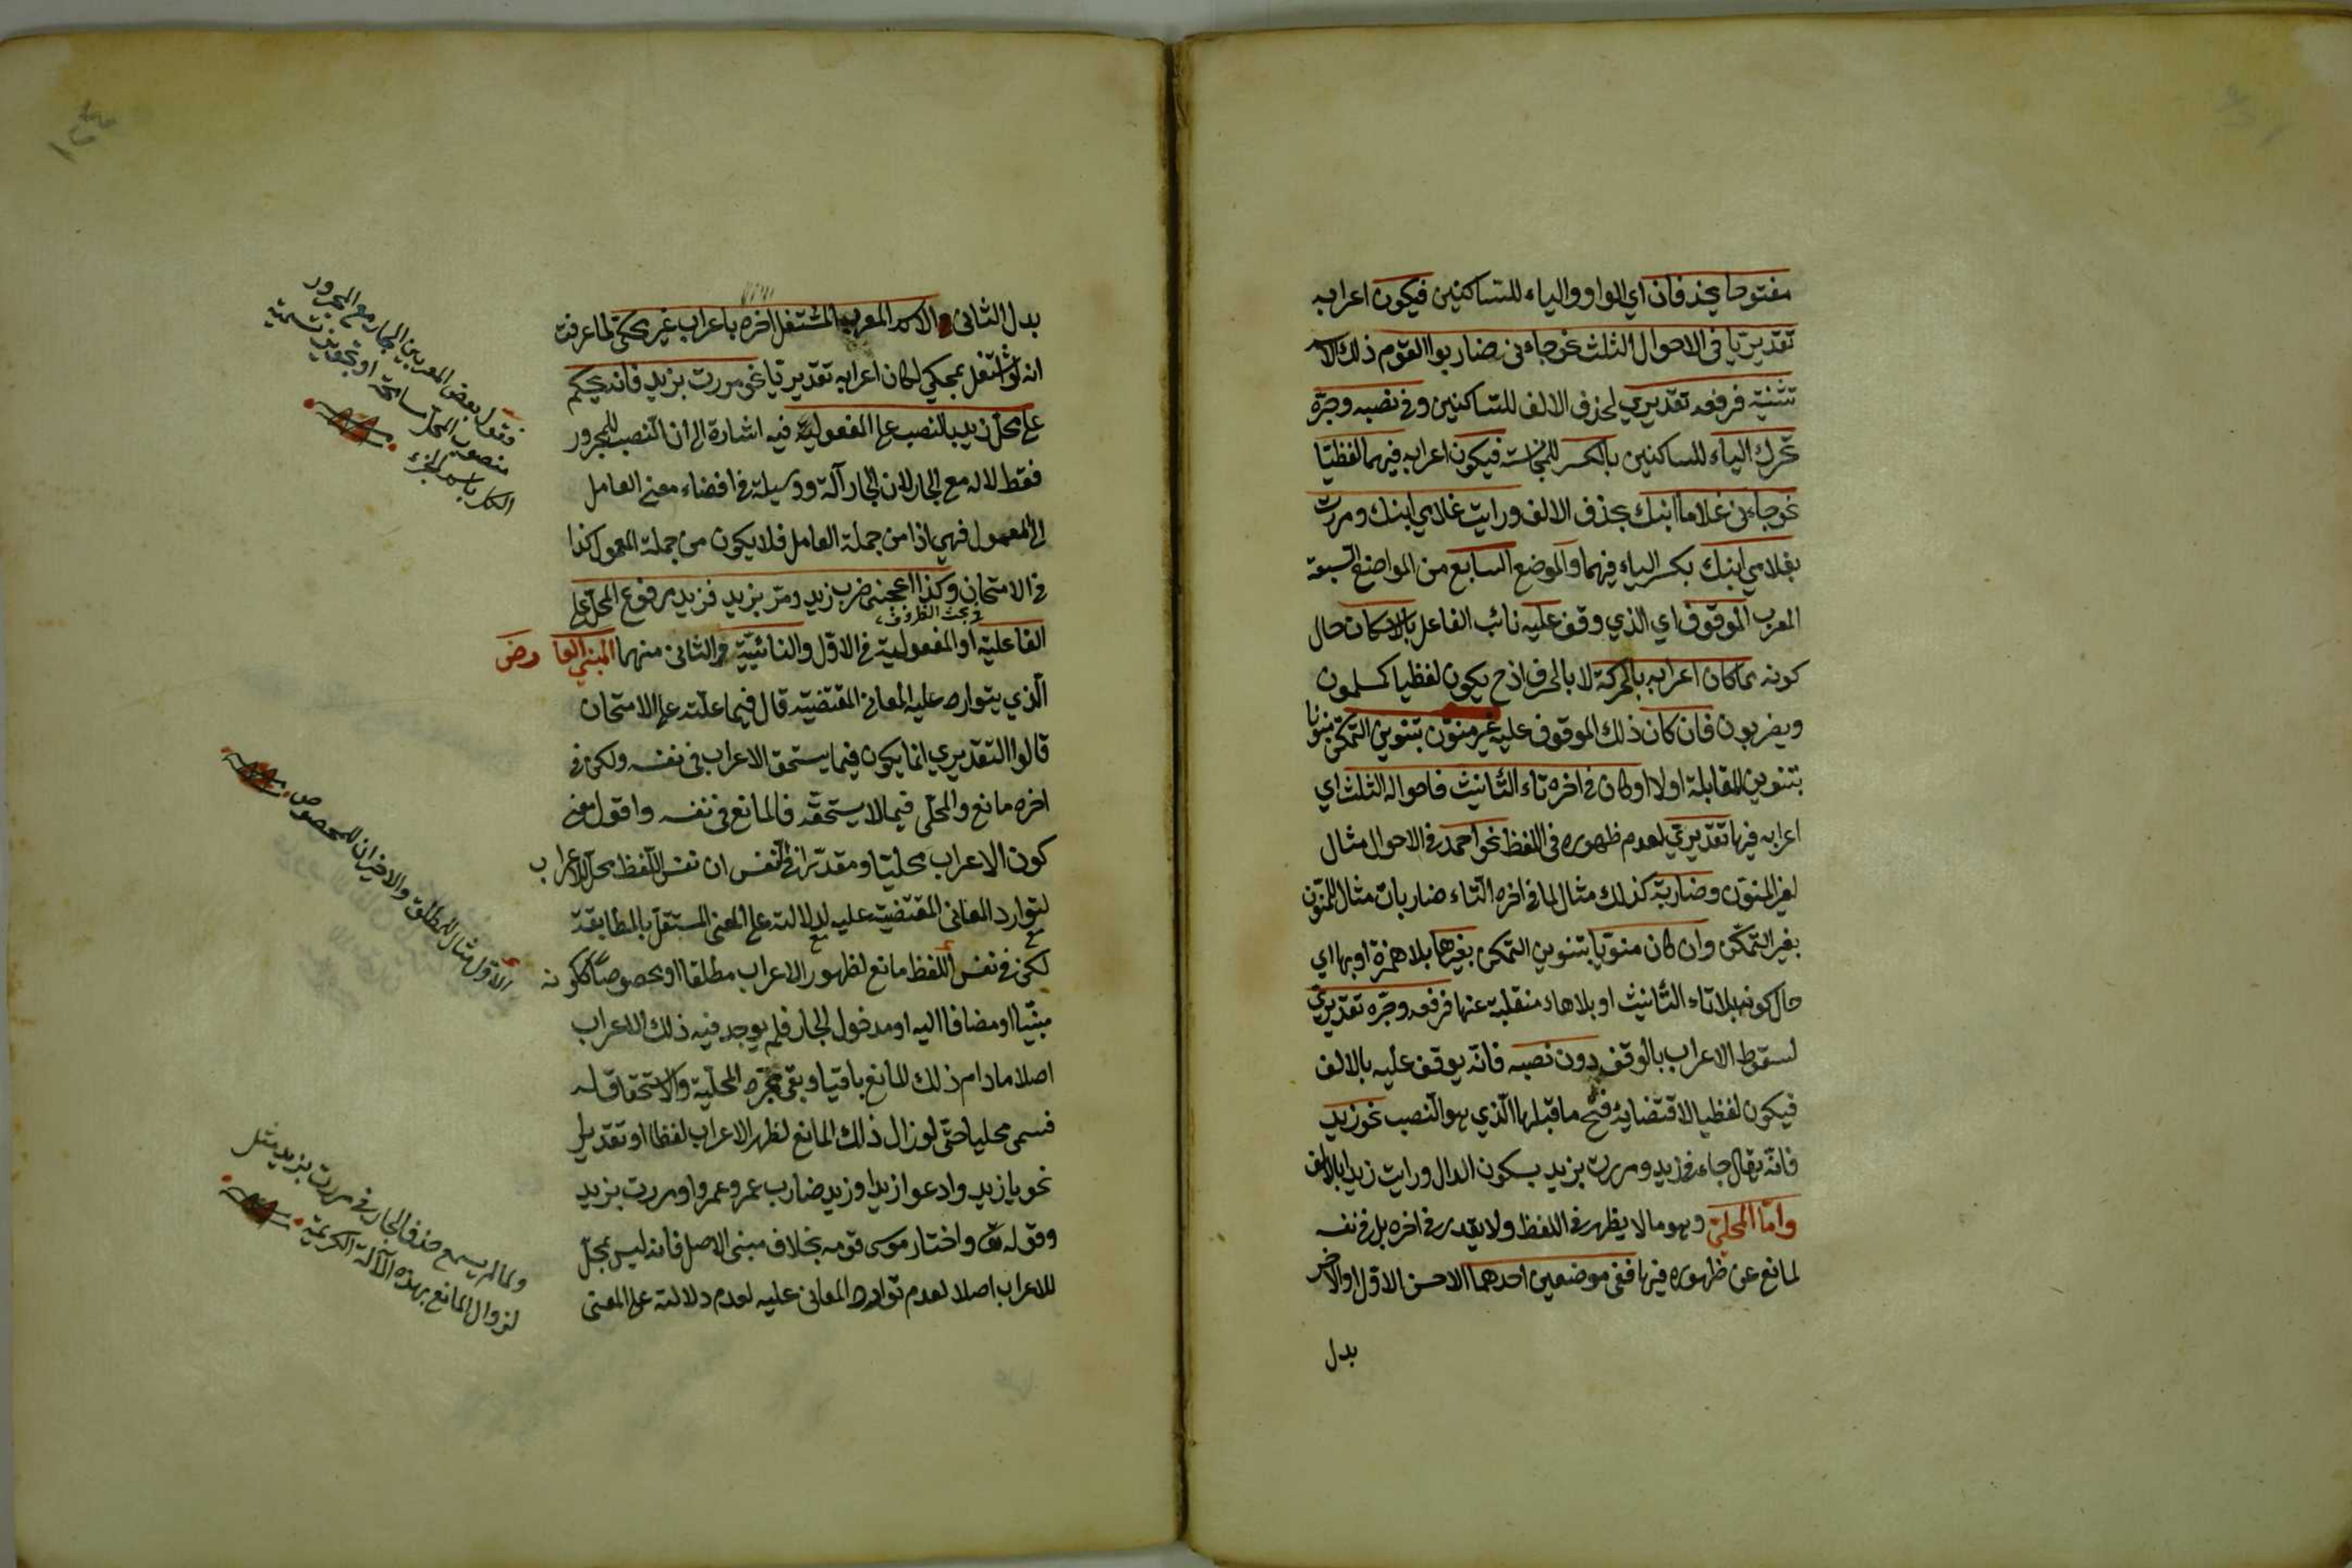 مفتوحا يحذفان اي الواو والياء للساكنين فيكون اعرابه
تقديريا في الاحوال الثلث نحو جاءني ضاربوا القوم ذلك الاسم
تثنية فرفعه تقديري لحذف الالف للساكنين وفي نصبه وجره
تحرك الياء للساكنين بالكسر للمجانسة فيكون اعرابه فيهما لفظيا
نحو جاءني غلاما ابنك بحذف الالف ورايت غلامي ابنك ومررت
بغلامي ابنك بكسر الياء فيهما والموضع السابع من المواضع السبعة
المعرب الموقوف اي الذي وقف عليه نائب الفاعل بالاسكان حال
كونه مما كان اعرابه بالحركة لا بالحرف اذ ح يكون لفظيا كمسلمون
ويضربون فان كان ذلك الموقوف عليه غير منون بتنوين التمكن منونا
بتنوين المقابلة اولا او كان في اخره تاء التأنيث فاحواله الثلث اي
اعرابه فيها تقديري لعدم ظهوره في اللفظ نحو احمد في الاحوال مثال
لغير المنون وضاربة كذلك مثال لما في اخره التاء ضاربات مثال للمنون
بغير التمكن وان كان منونا بتنوين التمكن بغيرها بلا همزة او بها اي
حال كونه بلا تاء التأنيث او بلا هاء منقلبة عنها فرفعه وجره تقديري
لسقوط الاعراب بالوقف دون نصبه فانه يوقف عليه بالالف
فيكون لفظيا لاقتضائه فتح ما قبلها الذي هو النصب نحو زيد
فانه يقال جاءني زيد ومررت بزيد بسكون الدال ورايت زيدا بالالف
واما المحلي وهو ما لا يظهر في اللفظ ولا يقدر في اخره بل في نفسه
لمانع عن ظهوره فيها ففي موضعين احدهما الاسم الاول او الاخر
بدل
بدل الثاني الاسم المعرب المشتغل اخره باعراب غير محكي لما عرفت
انه لو اشتغل بمحكي لكان اعرابه تقديريا نحو مررت بزيد فانه يحكم
على محل زيد بالنصب على المفعولية فيه اشارة الى ان النصب للمجرور
فقط لا له مع الجار لان الجار آلة ووسيلة في افضاء معنى العامل
الى المعمول فهي اذا من جملة العامل فلا يكون من جملة المعمول كذا
في الامتحان وكذا اعجبني ضرب زيد ومر بزيد فزيد مرفوع المحل على
في بحث الظروف
الفاعلية او المفعولية في الاول والنائبية في الثاني منهما المبني العارض
الذي يتوارد عليه المعاني المقتضية قال فيما علقته على الامتحان
قالوا التقديري انما يكون فيما يستحق الاعراب في نفسه ولكن في
اخره مانع والمحلي فيما لا يستحقه فالمانع في نفسه واقول معنى
كون الاعراب محليا ومقدرا في النفس ان نفس اللفظ محل للاعراب
لتوارد المعاني المقتضية عليه لدلالته على المعنى المستقل بالمطابقة
لكن في نفس اللفظ مانع لظهور الاعراب مطلقا او مخصوصا ككونه
مبنيا او مضافا اليه او مدخول الجار فلم يوجد فيه ذلك الاعراب
اصلا ما دام ذلك المانع باقيا وبقي مجرد المحلية والاستحقاق له
فسمى محليا حتى لو زال ذلك المانع لظهر الاعراب لفظا او تقديرا
نحو يا زيد وادعوا زيدا وزيد ضارب عمرو وعمروا ومررت بزيد
وقوله تع واختار موسى قومه بخلاف مبني الاصل فانه ليس بمحل
للاعراب اصلا لعدم توارد المعاني عليه لعدم دلالته على المعنى
فقول بعض المعربين الجار مع المجرور
منصوب المحل مسامحة او
الكل باسم الجزء
الاول مثال للمطلق والاخيران للمخصوص
ولما لم يسمع حذف الجار في مررت بزيد مثل
لزوال المانع بهذه الآية الكريمة